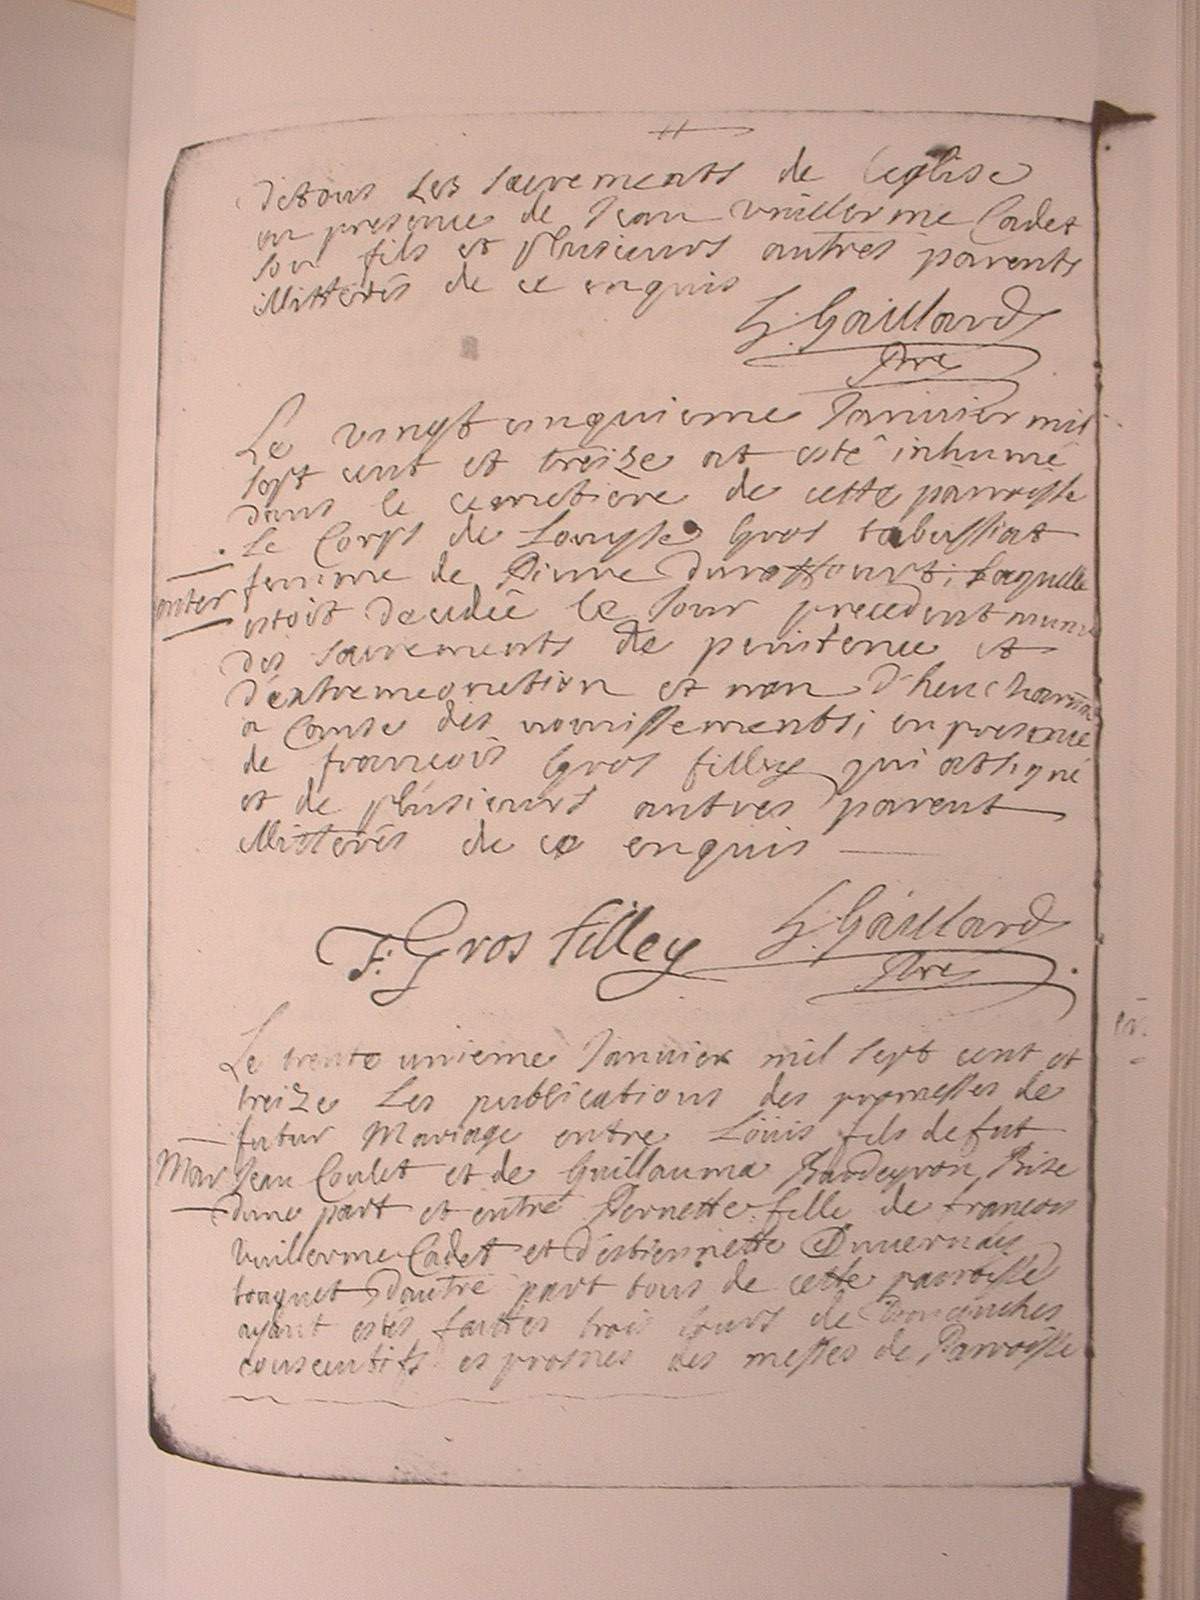 de tous Les sacrements de Leglise
en presence de Jean vuillerme Cadet
son fils et plusieurs autres parents
illitterés de ce enquis
Gaillard
pbre
Le vingt cinquieme Janvier mil
sept cent et treize at esté inhumé
dans le cemetiere de cette parroisse
Le Corps de Louyse Gros tabussiat
femme de Pierre Duraffourt; Laquelle
enter
estoit decedée le Jour precedent munie
des sacrements de penitence et
d'extremeonction et non D'heucharistie
a Cause des vomissements; en presence
de francois Gros filley qui at signé
et de plusieurs autres parent
illitterés de ce enquis
F. Gros filley Gaillard
pbre
Le trente unieme Janvier mil sept cent et
treize Les publications des promesses de
futur Mariage entre Loüis fils de fut
Mar Jean Coulet et de Guillauma
dune part et entre Pernette fille de francois
Vuillerme Cadet et d'estiennette Duvernay
touquet d'autre part tous de cette parroisse
ayant estés faittes trois Jours de Dimenches
consecutifs es prosnes des messes de Parroisse